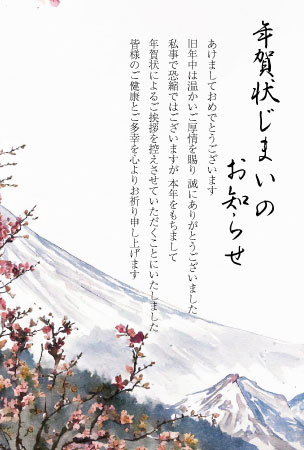 年賀状じまいの
お知らせ
あけましておめでとうございます
旧年中は温かいご厚情を賜り 誠にありがとうございました
私事で恐縮ではございますが 本年をもちまして
年賀状によるご挨拶を控えさせていただくことにいたしました
皆様のご健康とご多幸を心よりお祈り申し上げます